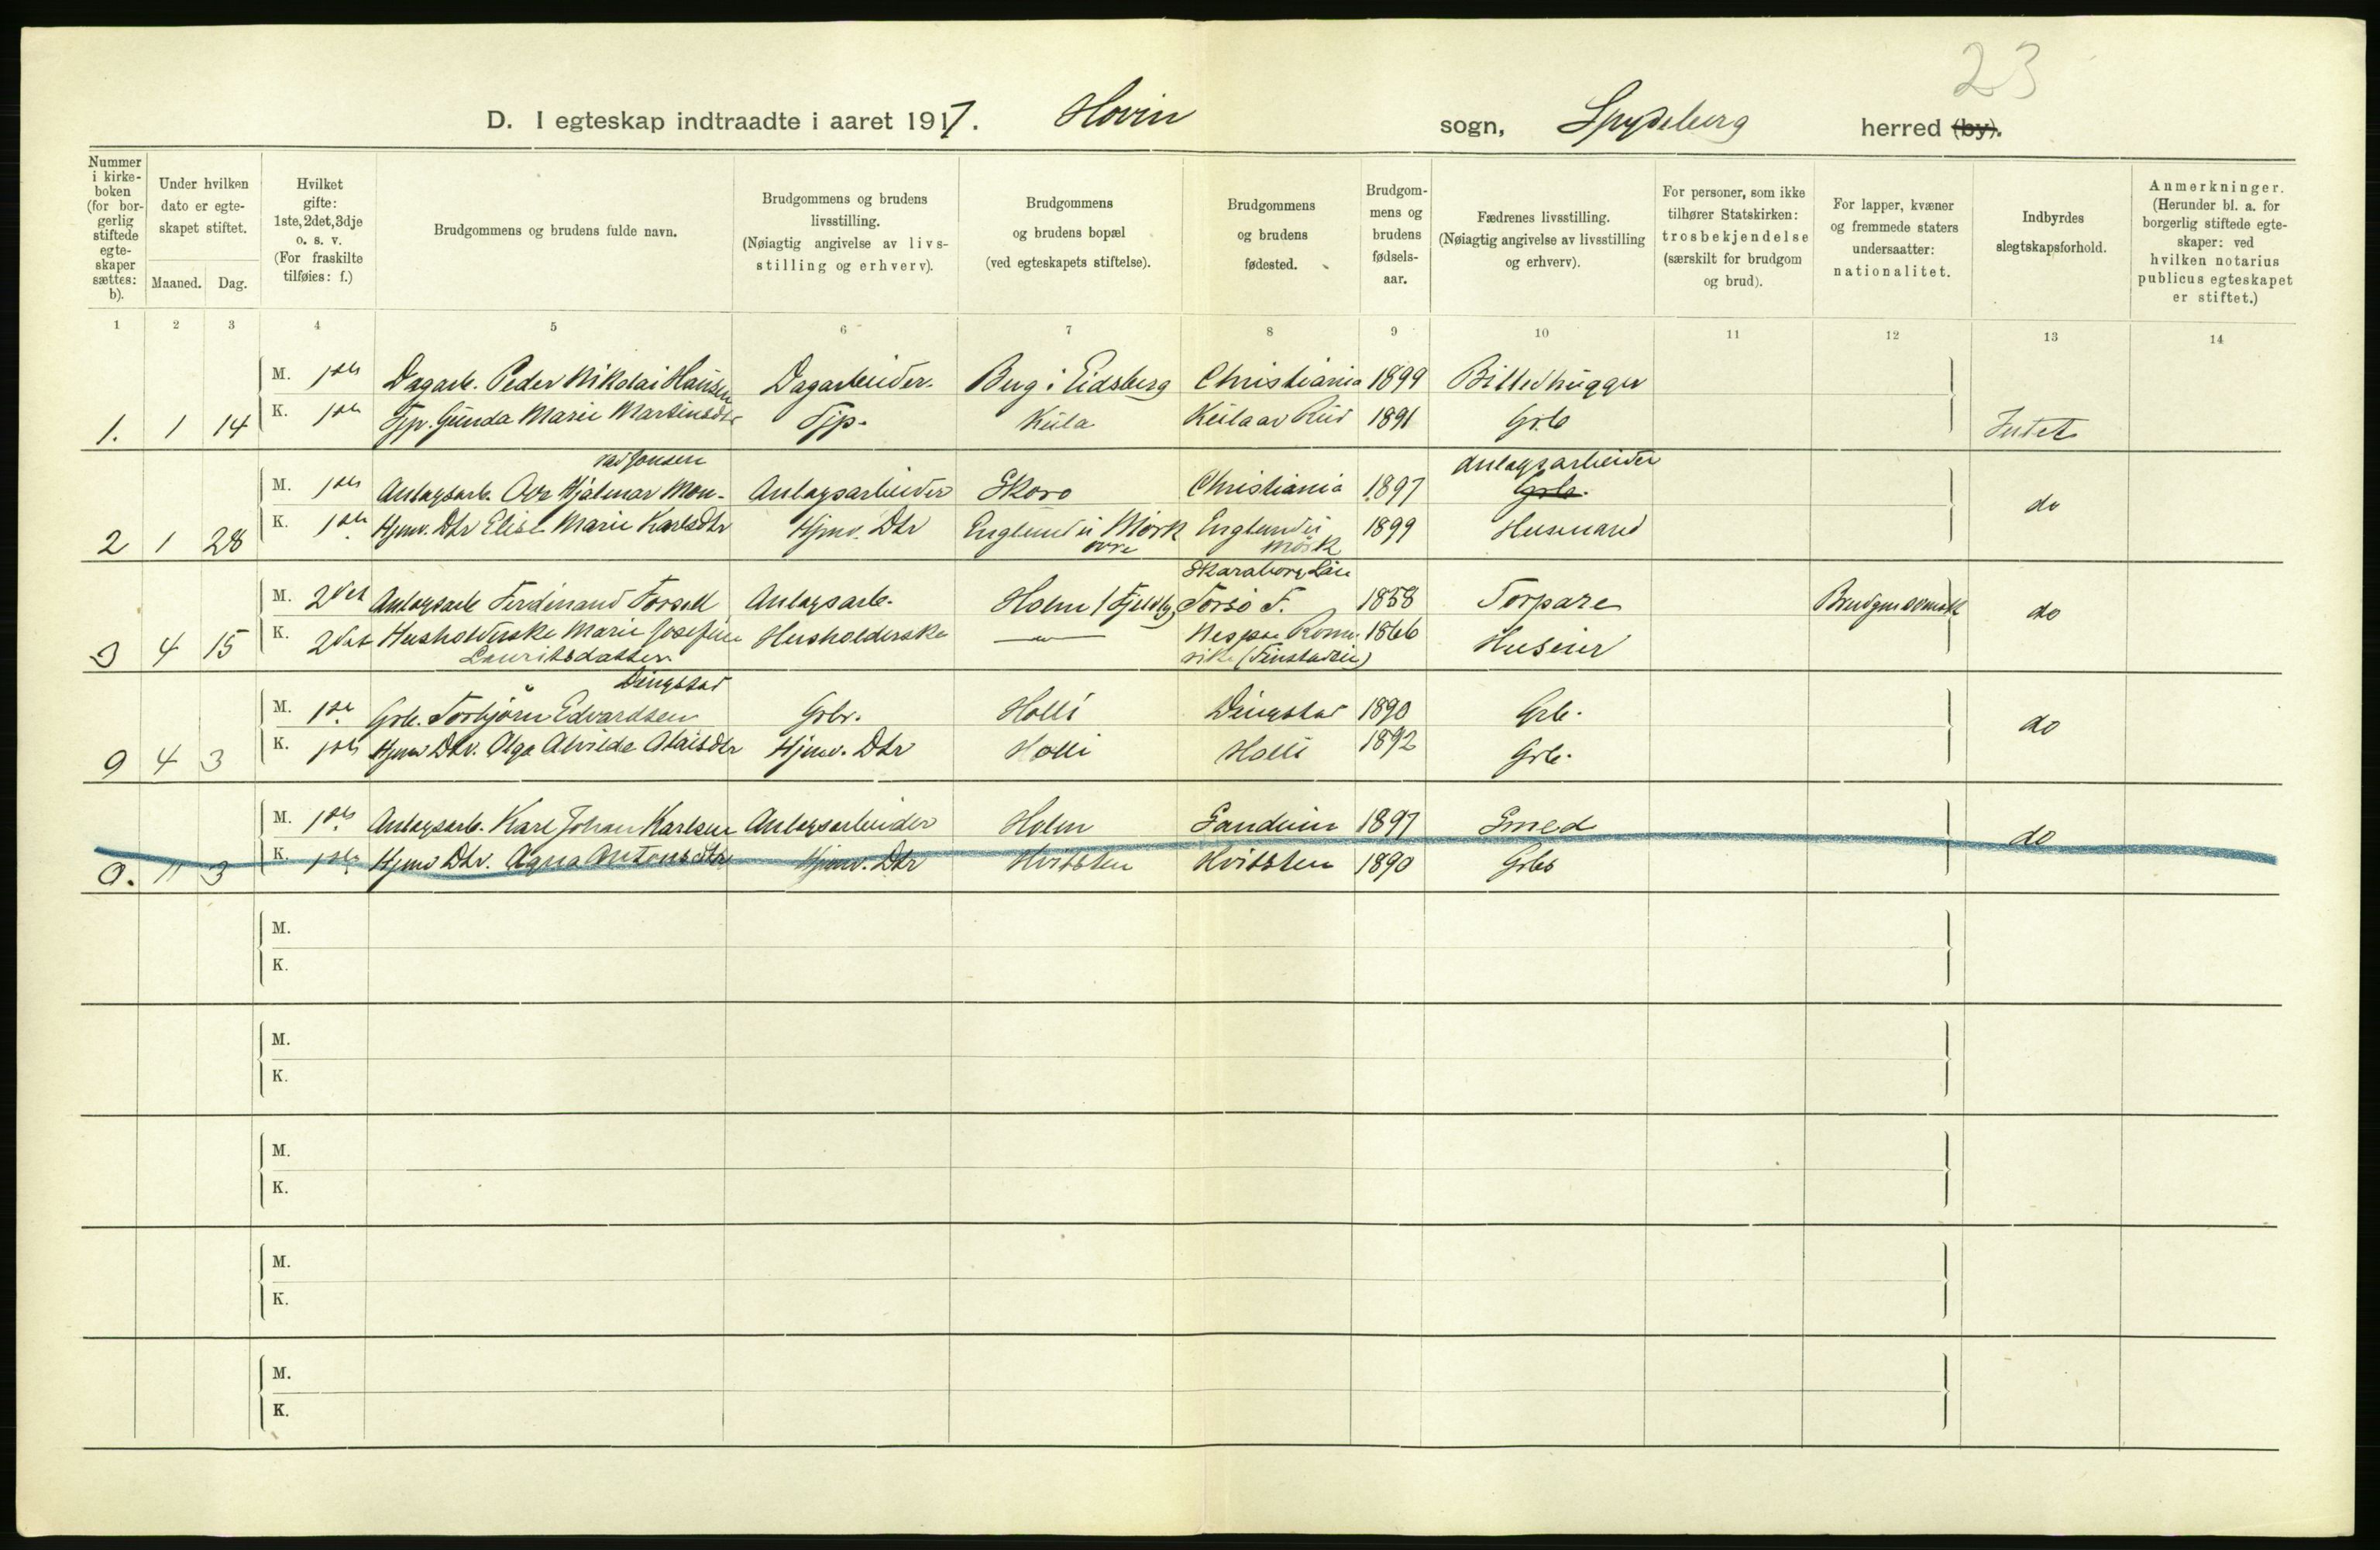 23
D. I egteskap indtraadte i aaret 1917. Hovin sogn, Spydeberg herred (by).
Nummer i kirke-boken (for bor-gerlig stiftede egte-skaper sættes: b).
Under hvilken dato er egte-skapet stiftet.
Maaned. Dag.
Hvilket gifte: 1ste, 2det, 3dje o. s. v. (For fraskilte tilføies: f.)
Brudgommens og brudens fulde navn.
Brudgommens og brudens livsstilling. (Nøiagtig angivelse av livs-stilling og erhverv).
Brudgommens og brudens bopæl (ved egteskapets stiftelse).
Brudgommens og brudens fødested.
Brudgom-mens og brudens fødsels-aar.
Fædrenes livsstilling. (Nøiagtig angivelse av livsstilling og erhverv).
For personer, som ikke tilhører Statskirken: trosbekjendelse (særskilt for brudgom og brud).
For lapper, kvæner og fremmede staters undersaatter: nationalitet.
Indbyrdes slegtskapsforhold.
Anmerkninger. (Herunder bl. a. for borgerlig stiftede egte-skaper: ved hvilken notarius publicus egteskapet er stiftet.)
1 2 3 4 5 6 7 8 9 10 11 12 13 14
M. 1ste Dagarb. Peder Nikolai Hansen Dagarbeider. Berg i Eidsberg Christiania 1899 Billedhugger
1. 1 14 K. 1ste Tjp. Gunda Marie Martinsdtr Tjp. Kula Kulaav Rud 1891 Grb Intet
rad Jonsen Anlagsarbeider
M. 1ste Anlagsarb. Hjalmar Mon- Anlagsarbeider Skoro Christiania 1897 Grb. do
2 1 28 K. 1ste Hjmv. Dtr Elise Marie Karlsdtr Hjmv. Dtr Englund u Mørk Englund u 1899 Husmand
øvre Mørk
Skaraborg Län
M. 2det Anlagsarb Ferdinand Forsell Anlagsarb. Holm (Fjeldby) Torsö F. 1858 Torpare do
3 4 15 K. 2det Husholderske Marie Josefine Husholderske Nes paa Rome- 1866 Huseier
Lauritsdatter rike
Dingstad
M. 1ste Grb. Torbjørn Edvardsen Grbr. Holli Dingstad 1890 Grb. do
9 4 3 K. 1ste Hjmv Dtr. Olga Alvilde Olaisdtr Hjmv. Dtr Holli Holli 1892 Grb.
M. 1ste Anlagsarb. Karl Johan Karlsen Anlagsarbeider Holm 1897 Smed do
11 3 K. 1ste Hjmv Dtr. Agna Antonsdtr Hjmv. Dtr Hvitsten Hvitsten 1890 Grbs
M.
K.
M.
K.
M.
K.
M.
K.
M.
K.